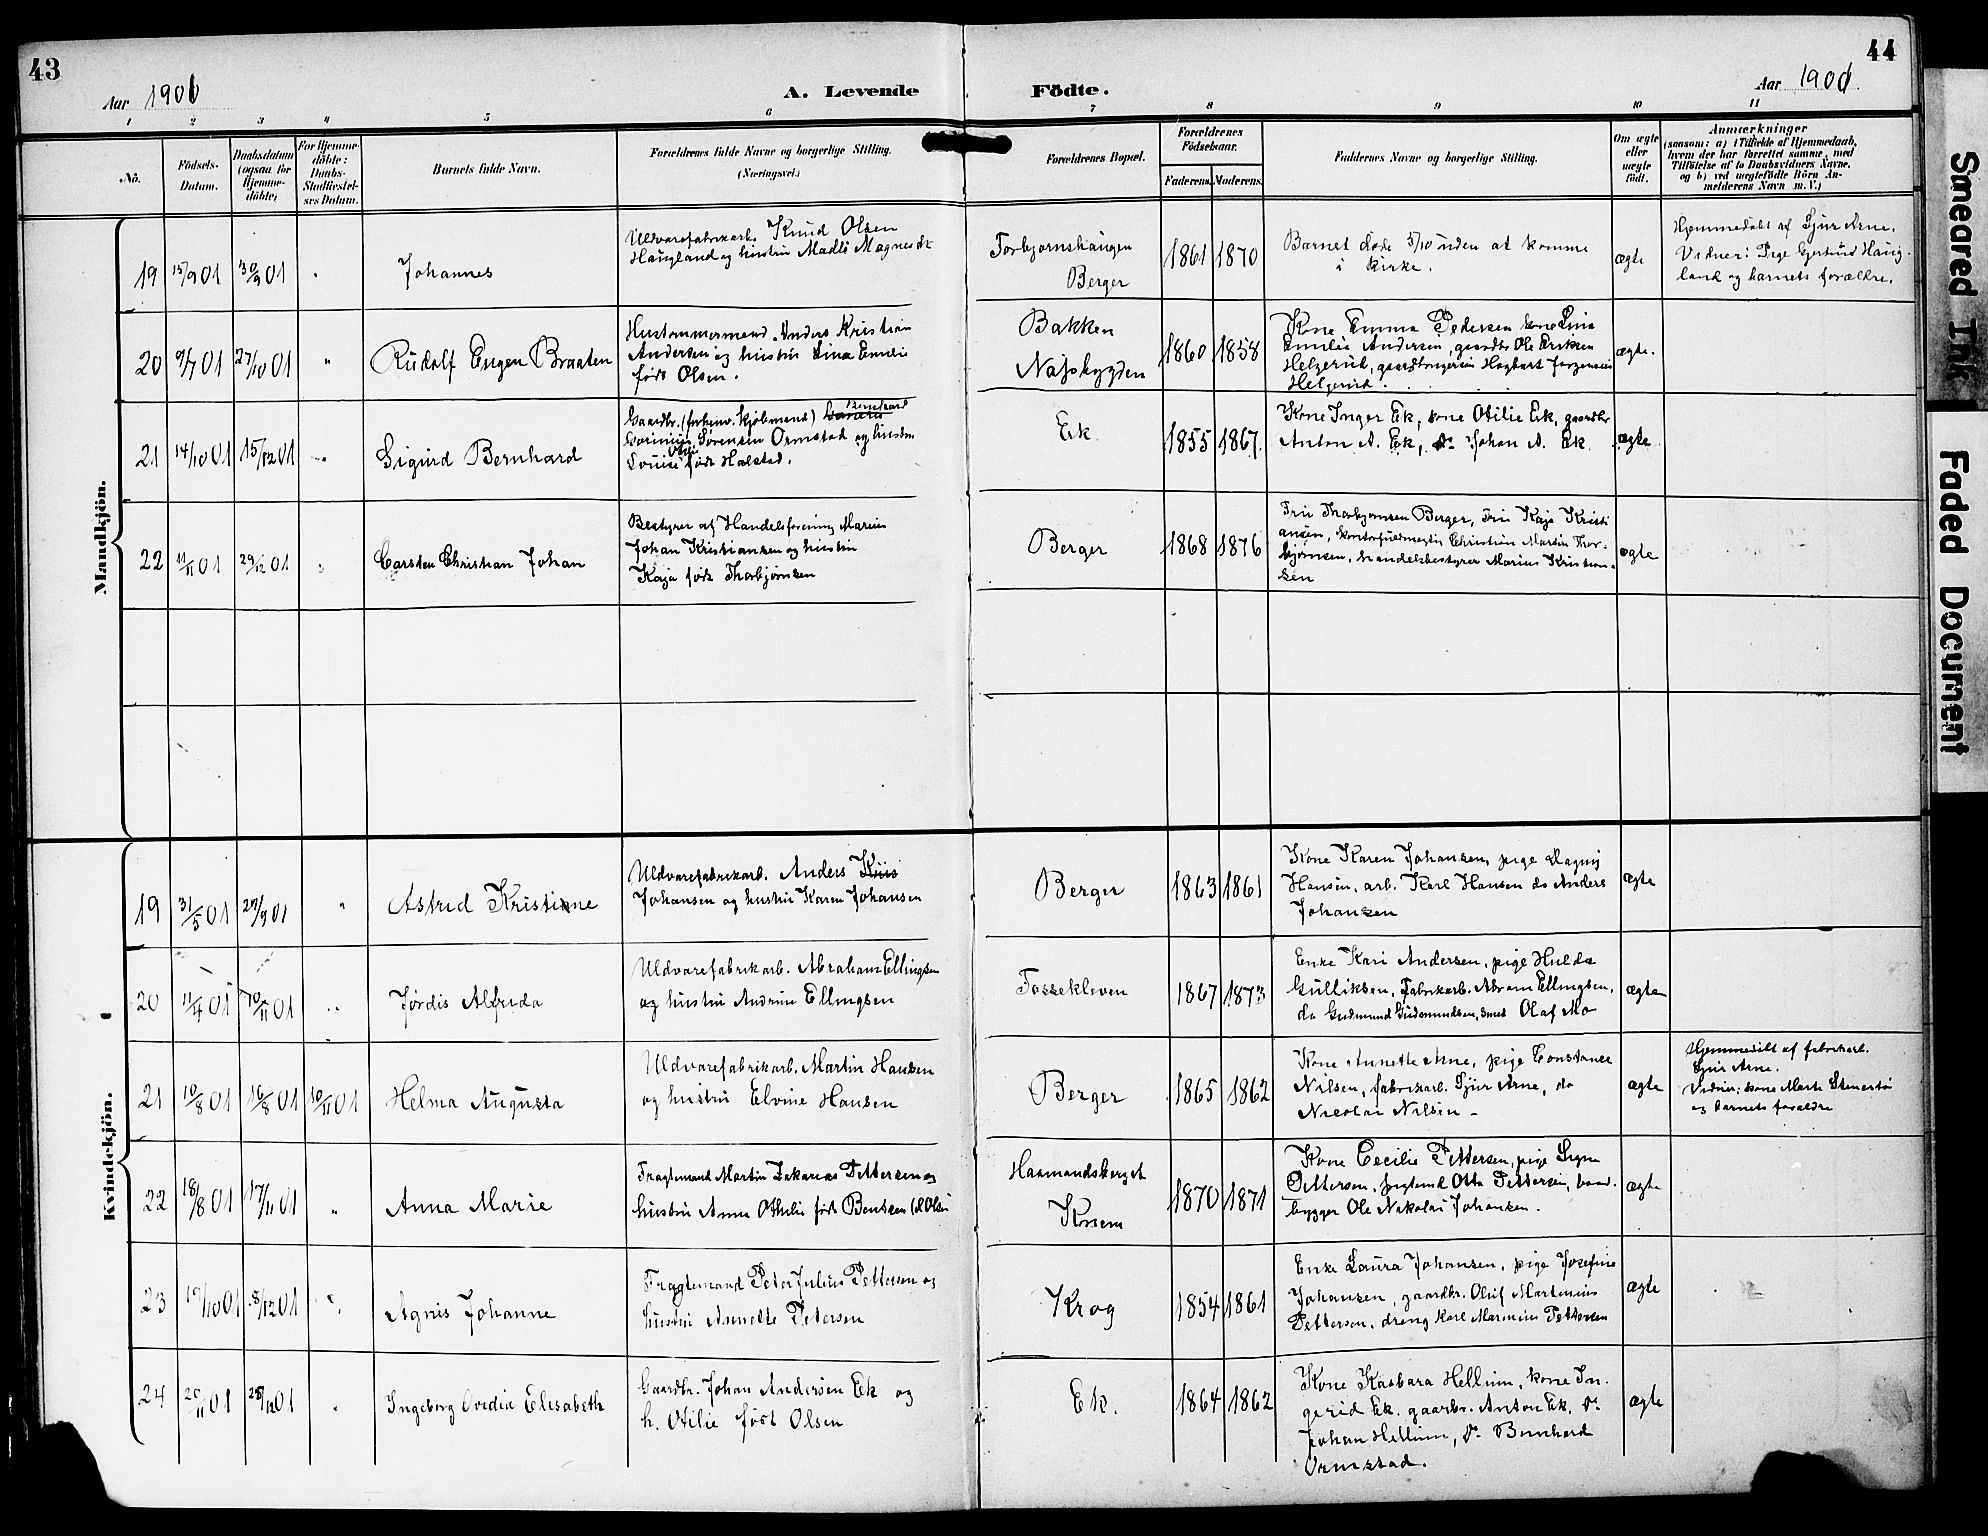 43
44
Aar 1901
A. Levende
Födte.
Aar 1901.
1 2 3 4 5 6 7 8 9 10 11
No.
Födsels-
Datum.
Daabsdatum
(ogsaa for
Hjemme-
döbte)
For Hjemme-
döbte:
Daabs-
Stadfæstel-
ses Datum.
Barnets fulde Navn.
Forældrenes fulde Navne og borgerlige Stilling.
(Næringsvei.)
Forældrenes Bopæl.
Forældrenes
Födselsaar.
Faderens.
Moderens.
Faddernes Navne og borgerlige Stilling.
Om ægte
eller
uægte
födt.
Anmærkninger
(saasom: a) i Tilfælde af Hjemmedaab,
hvem der har forrettet samme, med
Tilföielse af to Daabsvidners Navne,
og b) ved uægtefödte Börn An-
melderens Navn m. V.)
Mandkjön.
19
15/9 01
30/9 01
"
Johannes
Uldvarefabrikarb. Knud Olsen
Haugland og hustru Madli Magnesdt
Torbjørnshaugen
Berger
1861
1870
Barnet døde 5/10 uden at komme
i kirke.
ægte
Hjemmedøbt af Sjur Arne.
Vidner: Pige Gjertrud Haug-
land og barnets forældre.
20
9/7 01
27/10 01
"
Rudolf Eugen Braaten
Hustømmermand Anders Kristian
Andersen og hustru Lina Emilie
født Olsen.
Bakken
Nøsbygden
1860
1858
Kone Emma Pedersen kone Lina
Emilie Andersen, gaardbr Ole Eriksen
Helgerud, gaardbrugersøn Hagbart Jørgensen
Helgerud.
ægte.
21
14/10 01
15/12 01
"
Sigurd Bernhard
Bernhard
Gaardbr. (forhenv. kjøbmand)
Sørensen Ormstad og hustru
Louise født Halstad.
Ek
1855
1867
Kone Inger Ek, kone Otilie Ek, gaardbr
Anton A. Ek, do Johan A. Ek
ægte
22
11/11 01
29/12 01
"
Carsten Christian Johan
Bestyrer af Handelsforening Marius
Johan Kristiansen og hustru
Kaja født Thorbjørnsen
Berger
1868
1876
Fru Thorbjørnsen Berger, Fru Kaja Kristi
ansen, kontorfuldmægtig Christian Martin Thor-
bjørnsen, handelsbestyrer Marius Kristian-
sen
ægte
Kvindekjön.
19
31/5 01
29/9 01
"
Astrid Kristine
Uldvarefabrikarb. Anders
Johansen og hustru Karen Johansen
Berger
1863
1861
Kone Karen Johansen, pige Dagny
Hansen, arb. Karl Hansen do Anders
Johansen
ægte
20
11/4 01
10/11 01
"
Jørdis Alfrida
Uldvarefabrikarb. Abraham Ellingsen
og hustru Andrine Ellingsen
Fossekleven
1867
1873
Enke Kari Andersen, pige Hulda
Gulliksen, Fabrikarb. Abram Ellingsen,
do Gudmund Gudmundsen, smed Olaf Mo
ægte
21
10/8 01
16/8 01
10/11 01
Helma Augusta
Uldvarefabrikarb. Martin Hansen
og hustru Elvine Hansen
Berger
1865
1862
Kone Annette Arne, pige Constance
Nilsen, fabrikarb. Sjur Arne, do
Nicolai Nilsen -
ægte
Hjemmedøbt af fabrikarb.
Sjur Arne.
Vidner: kone Marte
og barnets forældre
22
18/8 01
17/11 01
"
Anna Marie
Fragtemand Martin Zakarias Pettersen og
hustru Anna Othilie født Bentsen
Haamandsberget
Knem
1870
1871
Kone Cecilie Pettersen, pige Signe
Pettersen, Otto Pettersen, baad-
bygger Ole Nikolai Johansen.
ægte
23
19/10 01
8/12 01
"
Agnis Johanne
Fragtemand Peter Julius Pettersen og
hustru Annette Petersen
Krog
1854
1861
Enke Laura Johansen, pige Josefine
Johansen, gaardbr. Oluf Martinius
Pettersen, dreng Karl Marinius Pettersen
ægte
24
20/11 01
26/12 01
"
Ingeborg Ovidia Elisabeth
Gaardbr. Johan Andersen Ek og
h. Otilie født Olsen
Ek.
1864
1862
Kone Kasbara Hellum, kone In-
gerid Ek, gaarbr. Anton Ek, do
Johan Hellum, do Bernhard
Ormstad.
ægte
Smeared Ink
Faded Document